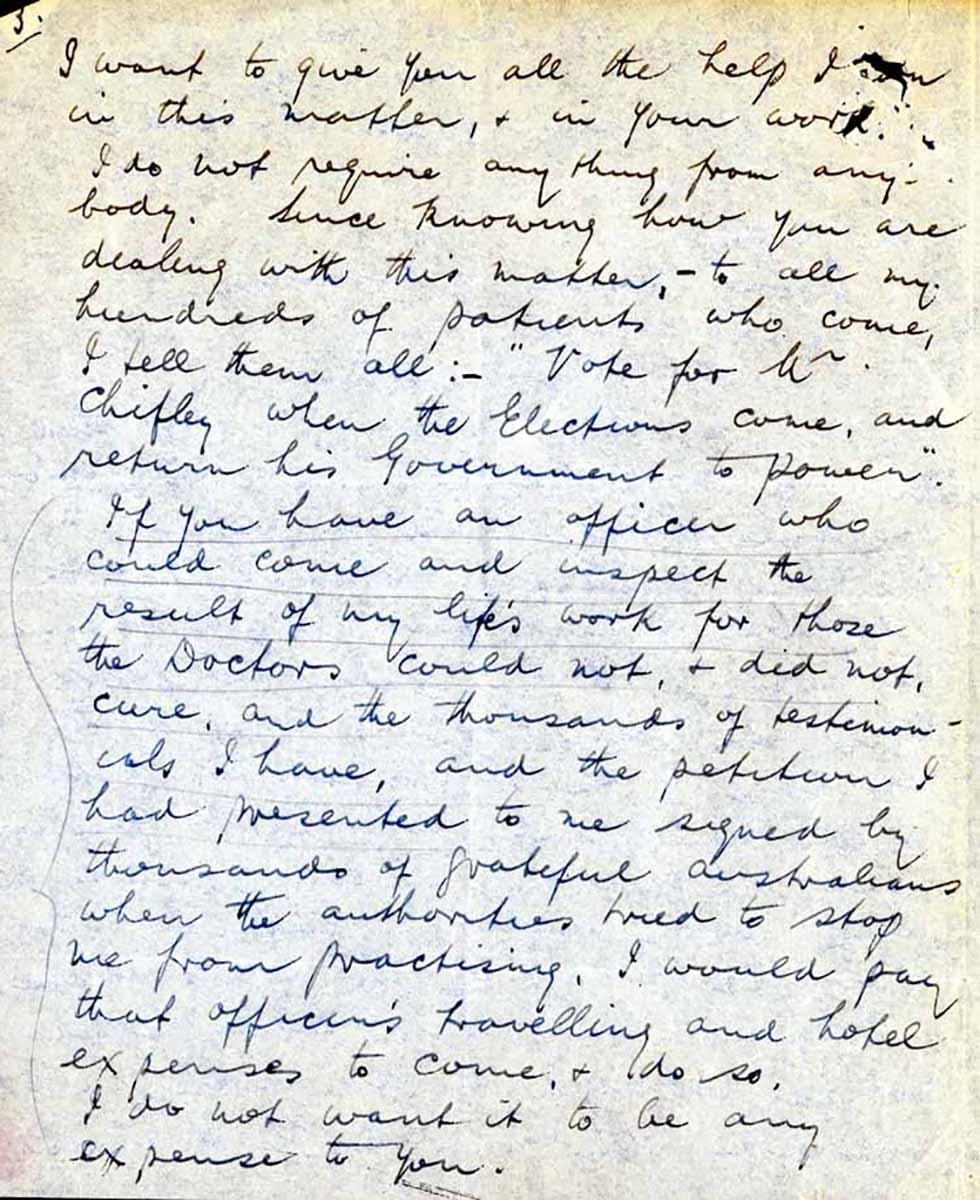 3.
I want to give you all the help I can
in this matter, & in your work.
I do not require any thing from any-
body. Since knowing how you are
dealing with this matter, – to all my
hundreds of patients who come,
I tell them all :– "Vote for Mr.
Chifley when the Elections come, and
return his Government to power".
If you have an officer who
could come and inspect the
result of my life's work for those
the Doctors could not, & did not,
cure, and the thousands of testimon-
ials I have, and the petition I
had presented to me signed by
thousands of grateful Australians
when the authorities tried to stop
me from practising, I would pay
that officer's travelling and hotel
expenses to come, & do so.
I do not want it to be any
expense to you.